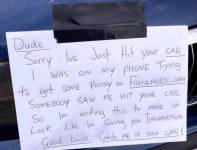 Dude
Sorry I've Just Hit your CAR
I was on my phone Trying
to get some Pussy on Fish4Hoes.com
Somebody saw me hit your car
So Im writing this to make it
Look Like Im Giving you Information
Good Luck Catch me if you can!